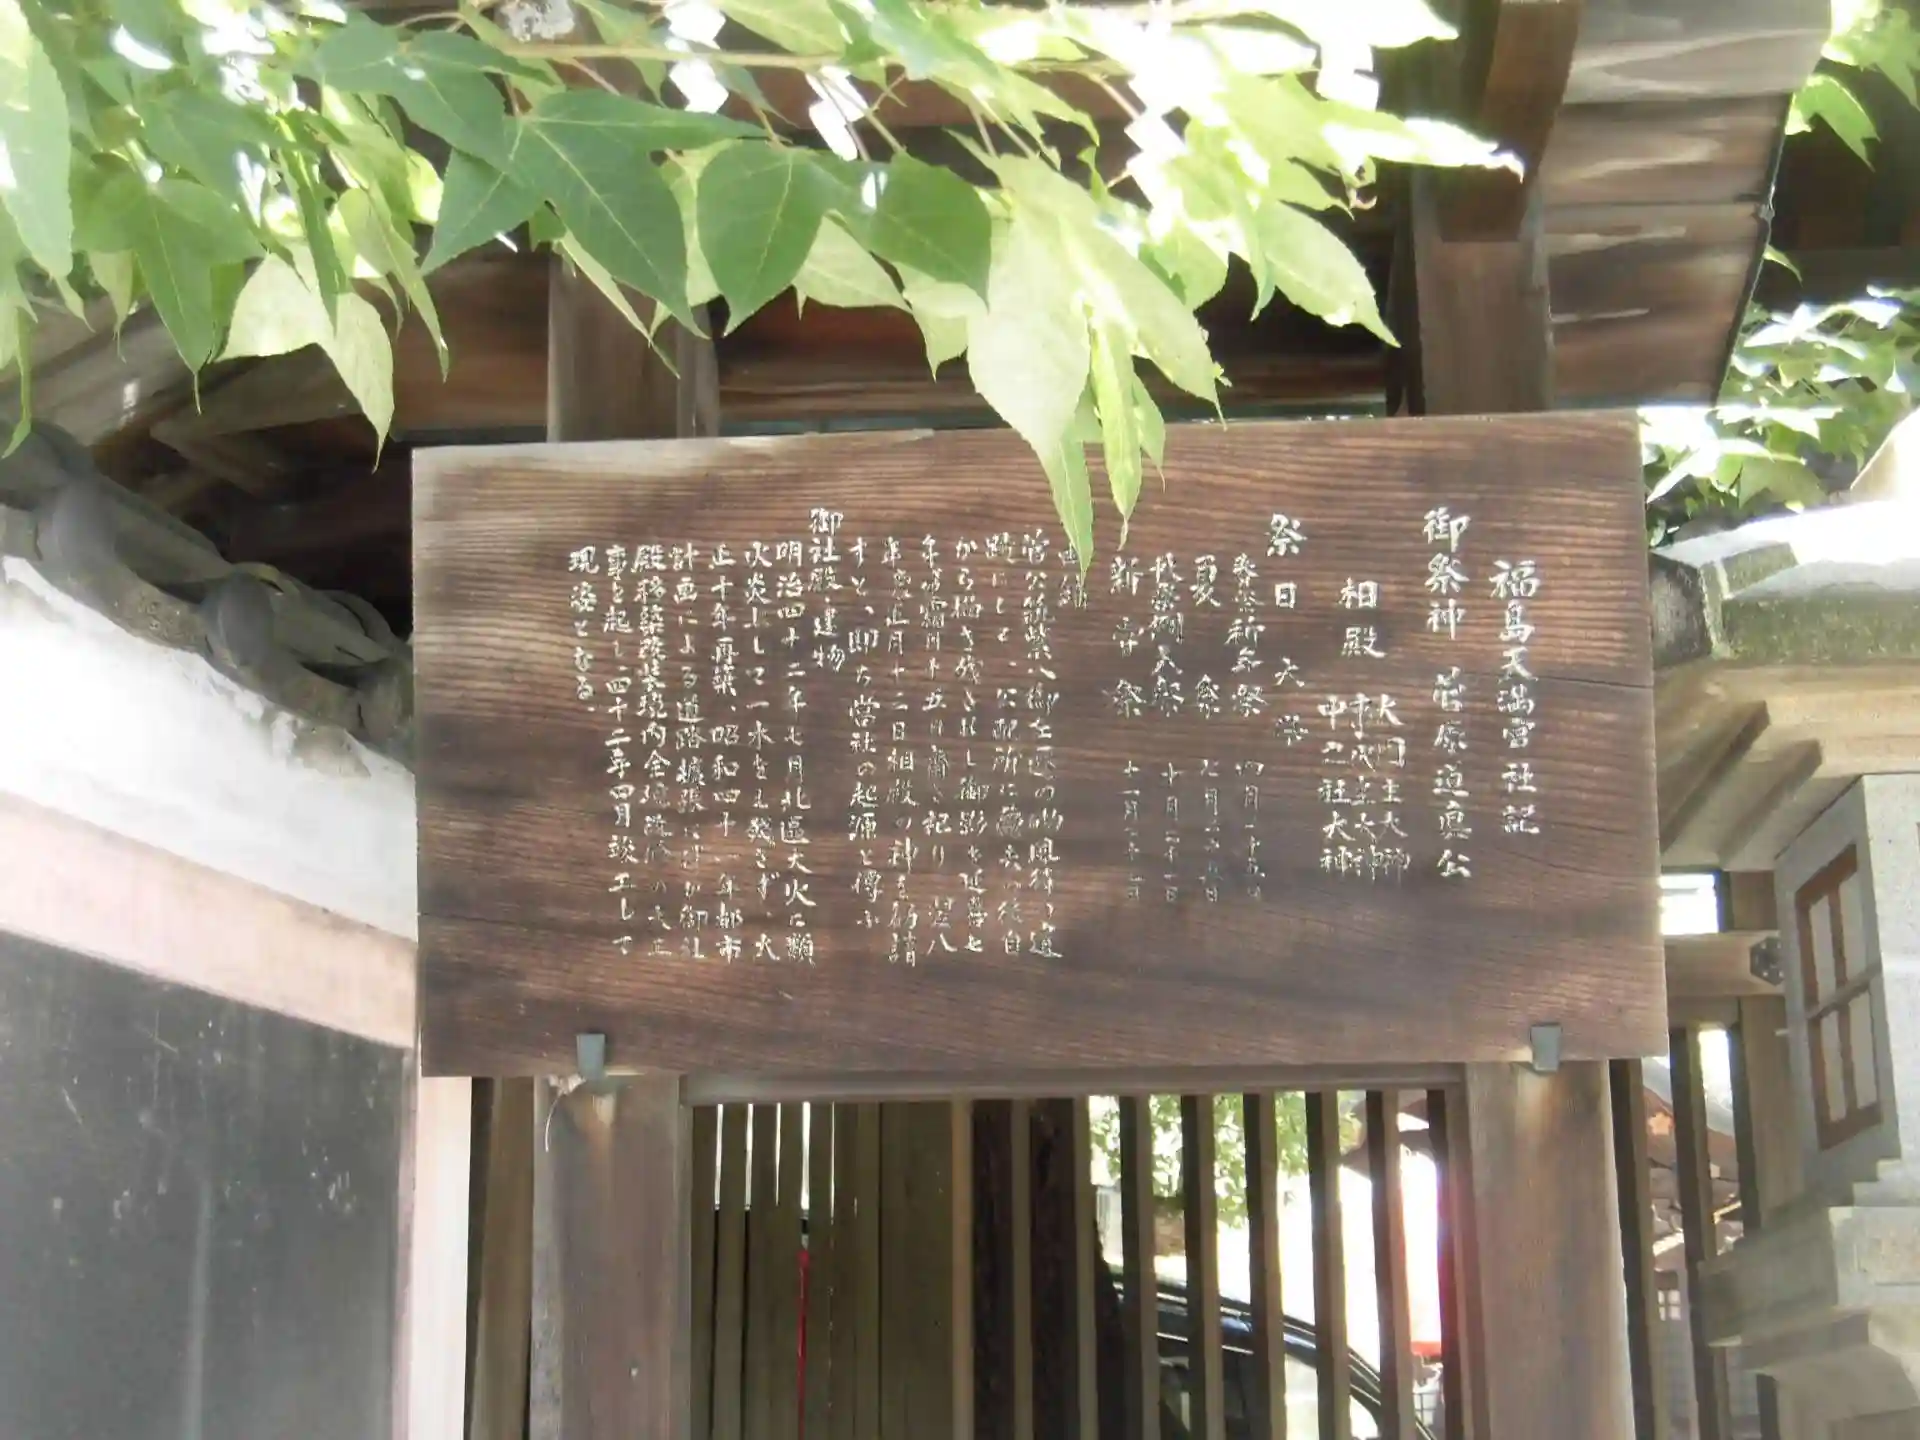 福島天満宮社記
御祭神 菅原道真公
相殿 大
事代主大神
中之社大神
祭日大祭
春祭祈年祭 四月二十五日
夏祭 七月二十五日
秋祭例大祭 十月二十
新嘗祭 十一月二十
由緒
菅公筑紫へ御左遷の時風待ち
にして、公配所に薨去の後自
から描き残されし御影を延喜七
年 霜月十五日齋き祀り
正月十二日相殿の神を勧請
すと、即ち当社の起源と傳ふ
御社殿建物
明治四十二年七月北區大火に類
火炎上して一木をも残さず、大
正十年再築、昭和四十一年都市
計画による道路擴張に 御社
殿移築改装境内全域 の大工
事を起し、四十二年四月竣工して
現姿となる。